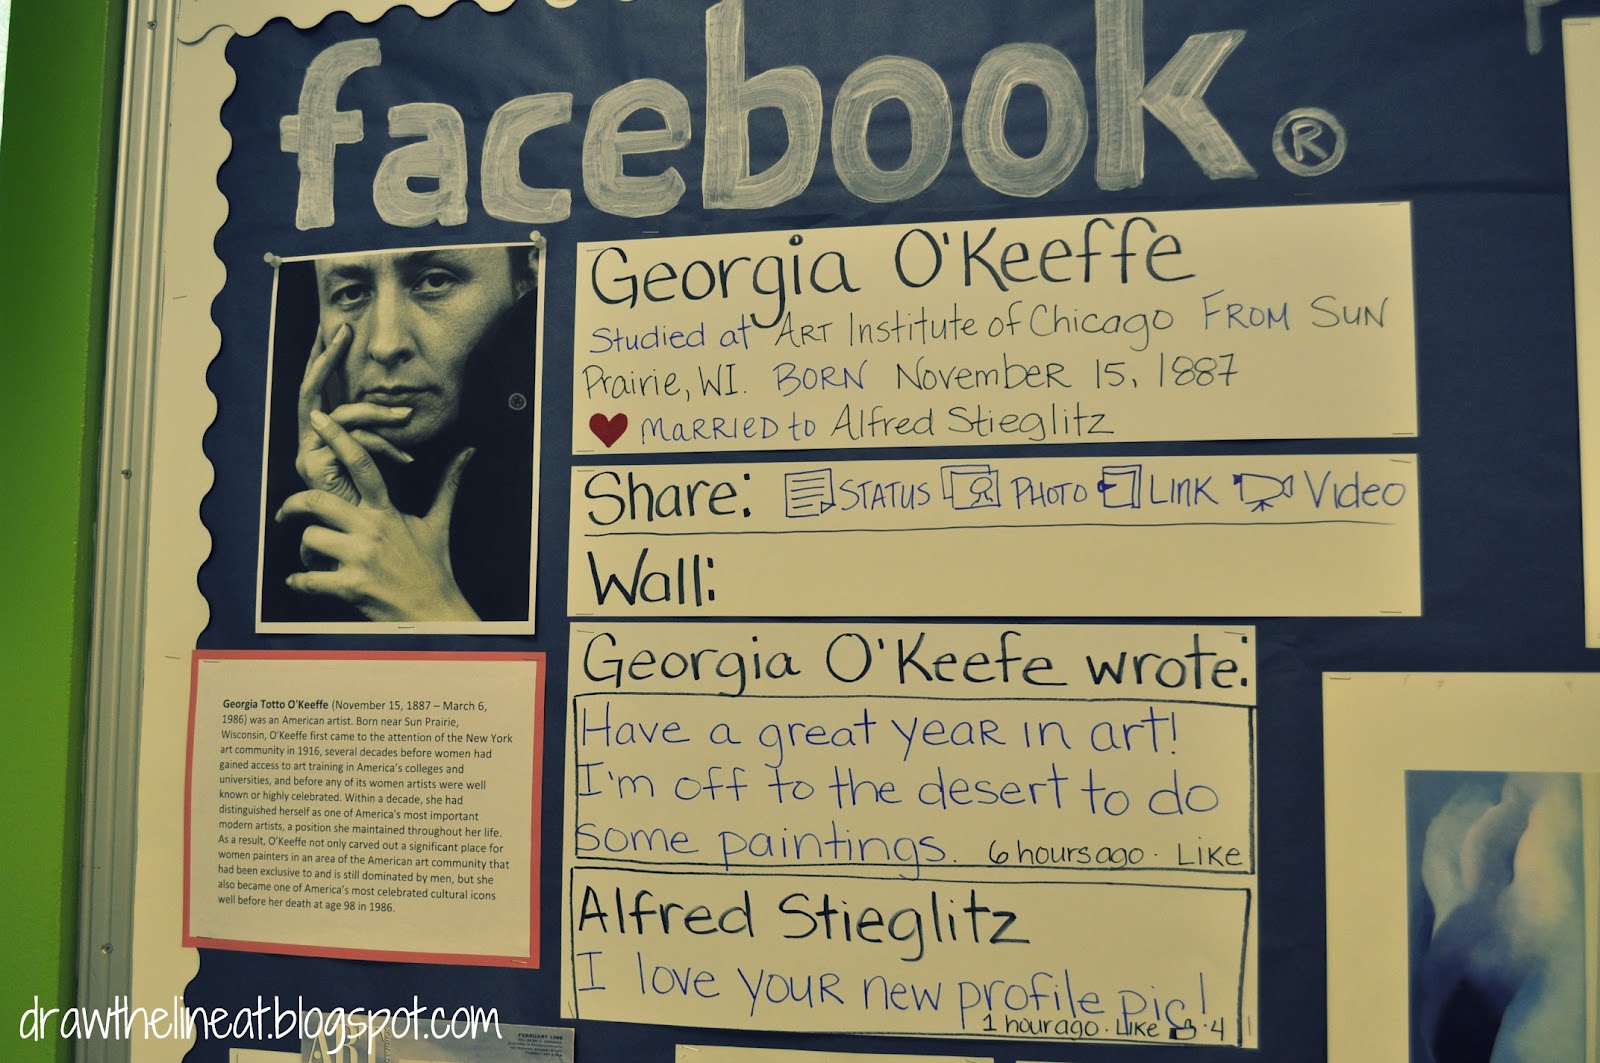 facebook®
Georgia O'Keeffe
Studied at Art Institute of Chicago From Sun
Prairie, WI. Born November 15, 1887
Married to Alfred Stieglitz
Share: Status Photo Link Video
Wall:
Georgia O'Keefe wrote:
Have a great year in art!
I'm off to the desert to do
some paintings. 6 hours ago · Like
Alfred Stieglitz
I love your new profile pic!
1 hour ago · Like · 4
Georgia Totto O'Keeffe (November 15, 1887 – March 6,
1986) was an American artist. Born near Sun Prairie,
Wisconsin, O'Keeffe first came to the attention of the New York
art community in 1916, several decades before women had
gained access to art training in America's colleges and
universities, and before any of its women artists were well
known or highly celebrated. Within a decade, she had
distinguished herself as one of America's most important
modern artists, a position she maintained throughout her life.
As a result, O'Keeffe not only carved out a significant place for
women painters in an area of the American art community that
had been exclusive to and is still dominated by men, but she
also became one of America's most celebrated cultural icons
well before her death at age 98 in 1986.
drawthelineat.blogspot.com
FEBRUARY 1998